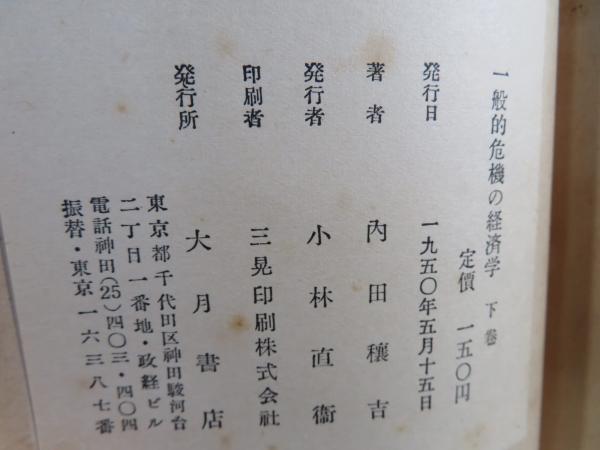 一般的危機の経済学 下巻
定價 一五〇円
発行日 一九五〇年五月十五日
著者 內田穰吉
発行者 小林直衞
印刷者 三晃印刷株式会社
発行所 大月書店
東京都千代田区神田駿河台
二丁目一番地・政経ビル
電話神田(25)四〇三・四〇四
振替・東京一六三八七番